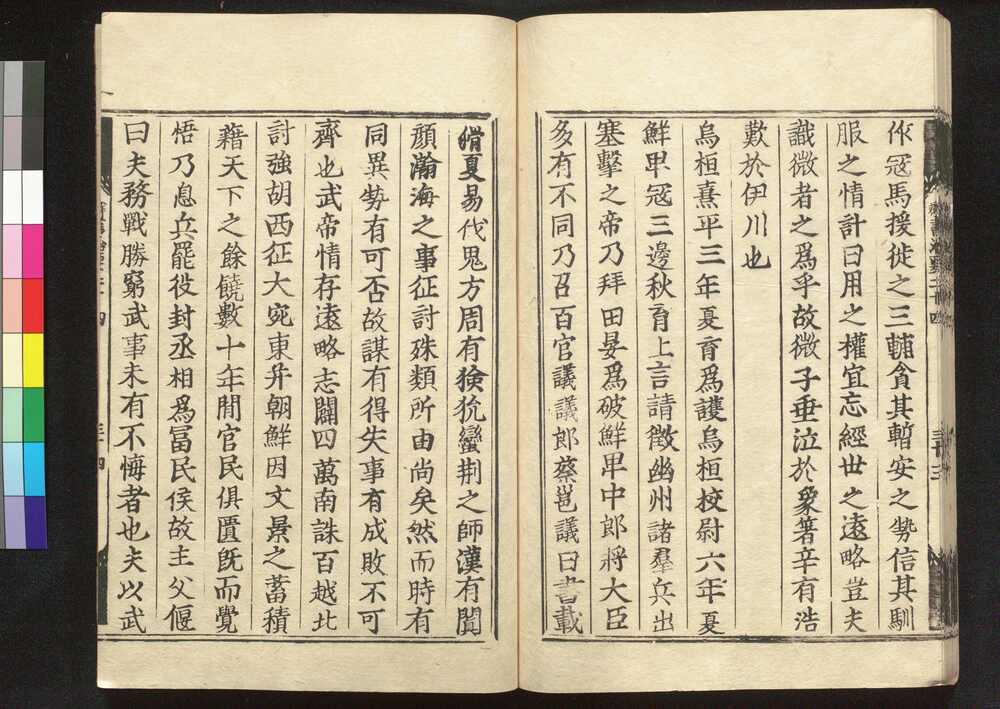 作冦馬援徙之三輔貪其暫安之勢信其馴
服之情計日用之權宜忘經世之遠略豈夫
識微者之爲乎故微子垂泣於象箸辛有浩
歎於伊川也
烏桓熹平三年夏育爲護烏桓校尉六年夏
鮮卑冦三邊秋育上言請徵幽州諸羣兵出
塞擊之帝乃拜田晏爲破鮮卑中郎將大臣
多有不同乃召百官議議郎蔡邕議曰書載
猾夏易伐鬼方周有獫狁蠻荆之師漢有闐
顏瀚海之事征討殊類所由尚矣然而時有
同異勢有可否故謀有得失事有成敗不可
齊也武帝情存遠略志闢四萬南誅百越北
討強胡西征大宛東并朝鮮因文景之蓄積
藉天下之餘饒數十年閒官民俱匱旣而覺
悟乃息兵罷役封丞相爲冨民侯故主父偃
曰夫務戰勝窮武事未有不悔者也夫以武